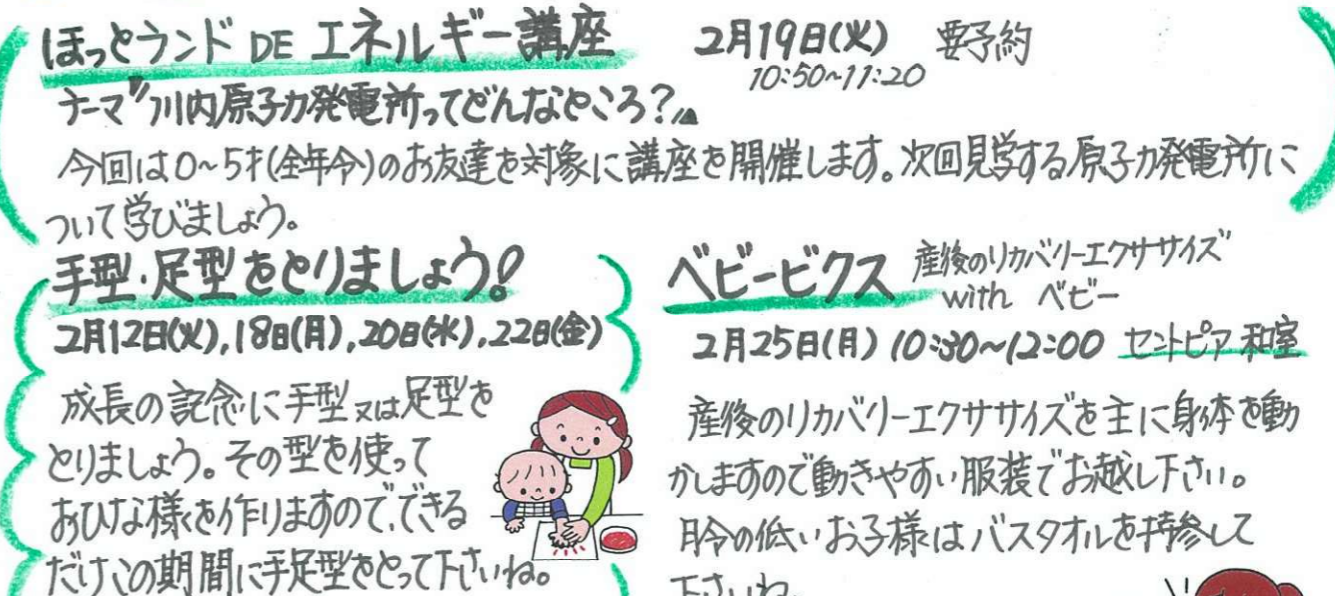 ほっとランド DE エネルギー講座 2月19日(火) 要予約
10:50~11:20
テーマ"川内原子力発電所ってどんなところ?"
今回は0~5才(全年令)のお友達を対象に講座を開催します。次回見学する原子力発電所に
ついて学びましょう。
手型・足型をとりましょう!
2月12日(火),18日(月),20日(水),22日(金)
成長の記念に手型又は足型を
とりましょう。その型を使って
おひな様を作りますので、できる
だけこの期間に手足型をとって下さいね。
ベビービクス 産後のリカバリーエクササイズ
with ベビー
2月25日(月) 10:30~12:00 セントピア 和室
産後のリカバリーエクササイズを主に身体を動
かしますので動きやすい服装でお越し下さい。
月令の低いお子様はバスタオルを持参して
下さいね。